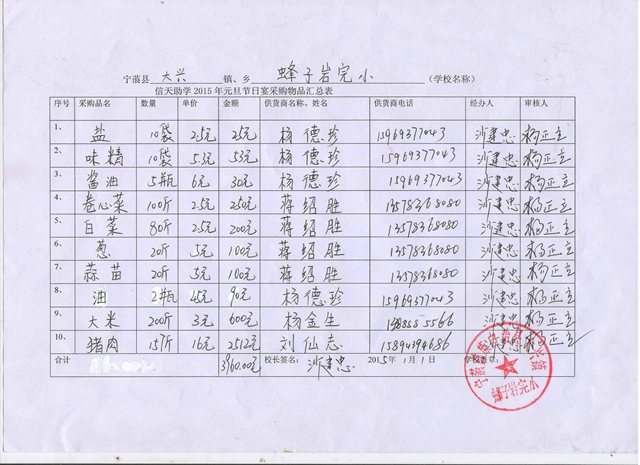 宁蒗县 大兴 镇、乡 蜂子岩完小 (学校名称)
信天助学 2015 年元旦节日宴采购物品汇总表
序号 采购品名 数量 单价 金额 供货商名称、姓名 供货商电话 经办人 审核人
1、 盐 10袋 2.5元 25元 杨德珍 15969377043 沙建忠 杨正立
2、 味精 10袋 5.3元 53元 杨德珍 15969377043 沙建忠 杨正立
3、 酱油 5瓶 6元 30元 杨德珍 15969377043 沙建忠 杨正立
4、 卷心菜 100斤 2.5元 250元 蒋绍胜 13578368080 沙建忠 杨正立
5、 白菜 80斤 2.5元 200元 蒋绍胜 13578368080 沙建忠 杨正立
6、 葱 20斤 5元 100元 蒋绍胜 13578368080 沙建忠 杨正立
7、 蒜苗 20斤 5元 100元 蒋绍胜 13578368080 沙建忠 杨正立
8、 油 2瓶 45元 90元 杨德珍 15969377043 沙建忠 杨正立
9、 大米 200斤 3元 600元 杨金生 沙建忠 杨正立
10、 猪肉 157斤 16元 2512元 刘仙志 15894394686 沙建忠 杨正立
合计 3960.00元 校长签名: 沙建忠 2015年1月1日 学校盖章:
蜂子岩完小